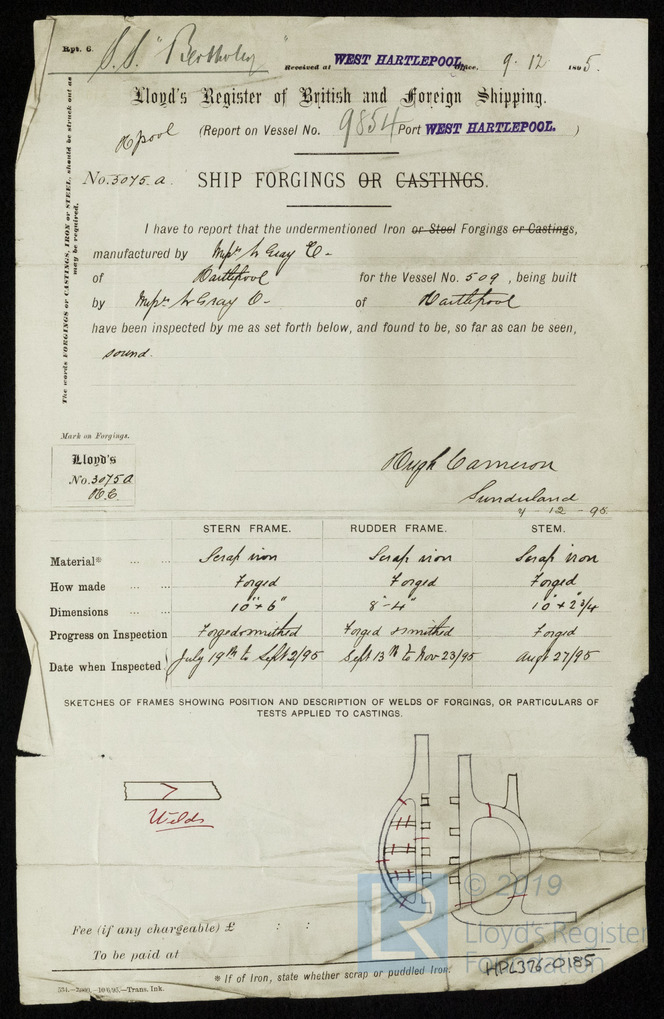 Rpt. 6.
S.S. "Bertholey"
Received at WEST HARTLEPOOL Office, 9.12 1895.
Lloyd's Register of British and Foreign Shipping.
Hpool (Report on Vessel No. 9854 Port WEST HARTLEPOOL. )
No. 3075.a. SHIP FORGINGS OR CASTINGS.
The words FORGINGS or CASTINGS, IRON or STEEL, should be struck out as may be required.
I have to report that the undermentioned Iron or Steel Forgings or Castings,
manufactured by Messrs W Gray & Co
of Hartlepool for the Vessel No. 509, being built
by Messrs W Gray & Co of Hartlepool
have been inspected by me as set forth below, and found to be, so far as can be seen,
sound.
Mark on Forgings.
Lloyd's
No. 3075a
H.C.
Hugh Cameron
Sunderland
4-12-95
STERN FRAME. RUDDER FRAME. STEM.
Material* ... ... Scrap iron Scrap iron Scrap iron
How made ... ... Forged Forged Forged
Dimensions ... ... 10" x 6" 8"-4" 10" x 2 3/4
Progress on Inspection Forged & smithed Forged & smithed Forged
Date when Inspected July 19th to Sept 2/95 Sept 13th to Nov 23/95 Augt 27/95
SKETCHES OF FRAMES SHOWING POSITION AND DESCRIPTION OF WELDS OF FORGINGS, OR PARTICULARS OF
TESTS APPLIED TO CASTINGS.
Welds
Fee (if any chargeable) £ : :
To be paid at
* If of Iron, state whether scrap or puddled Iron.
HPL376-0185
534.—2000.—10/6/95.—Trans. Ink.
LR
© 2019
Lloyd's Register
Foundation